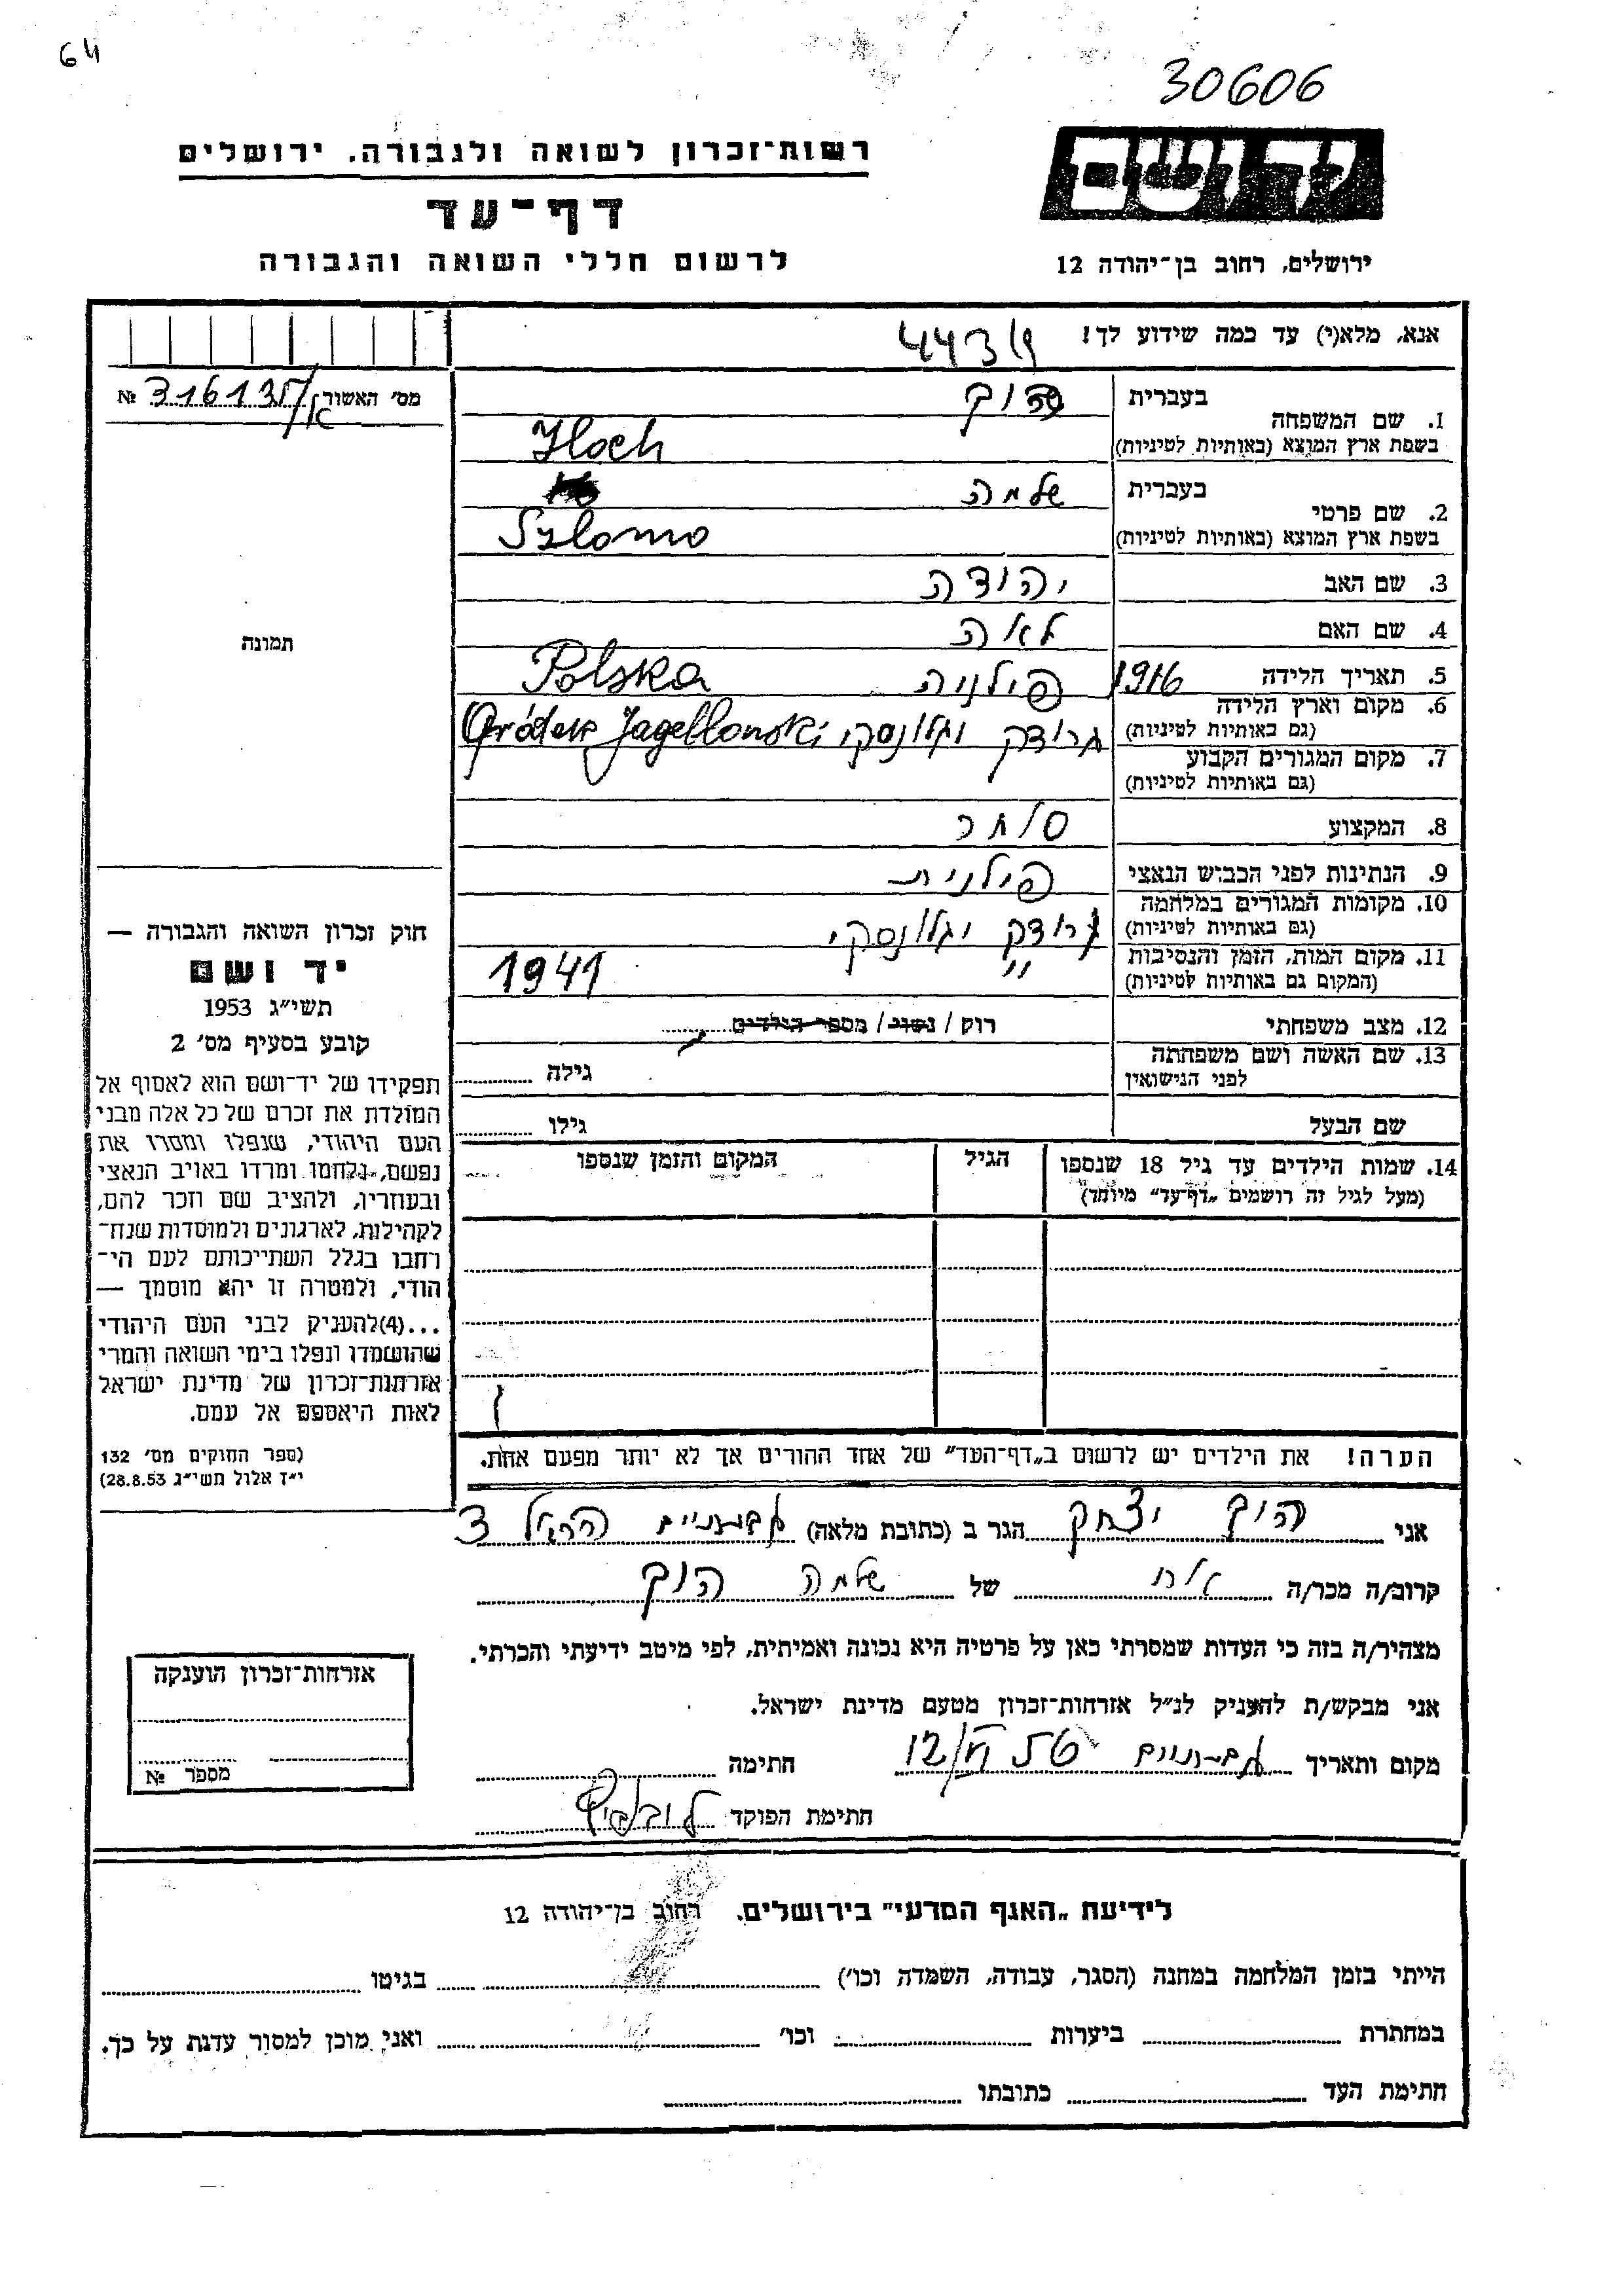 64
30606
יד ושם
רשות־זכרון לשואה ולגבורה. ירושלים
דף־עד
לרשום חללי השואה והגבורה
ירושלים, רחוב בן־יהודה 12
אנא, מלא(י) עד כמה שידוע לך!
מס׳ האשור № 316135/א
1. שם המשפחה
בעברית הוך
בשפת ארץ המוצא (באותיות לטיניות) Hoch
2. שם פרטי
בעברית שלמה
בשפת ארץ המוצא (באותיות לטיניות) Szlomo
3. שם האב יהודה
4. שם האם לאה
5. תאריך הלידה 1916
6. מקום וארץ הלידה פילניה Polska
(גם באותיות לטיניות) גרודק יגלונסקי Gródek Jagellonski
7. מקום המגורים הקבוע
(גם באותיות לטיניות)
8. המקצוע סוחר
9. הנתינות לפני הכבוש הנאצי פילנית
10. מקומות המגורים במלחמה
(גם באותיות לטיניות) גרודק יגלונסקי
11. מקום המות, הזמן והנסיבות " 1941
(המקום גם באותיות לטיניות)
12. מצב משפחתי רוק / נשוי / מספר הילדים
13. שם האשה ושם משפחתה
לפני הנישואין גילה
שם הבעל גילו
14. שמות הילדים עד גיל 18 שנספו הגיל המקום והזמן שנספו
(מעל לגיל זה רושמים „דף־עד״ מיוחד)
הערה! את הילדים יש לרשום ב„דף־העד״ של אחד ההורים אך לא יותר מפעם אחת.
תמונה
חוק זכרון השואה והגבורה —
יד ושם
תשי״ג 1953
קובע בסעיף מס׳ 2
תפקידו של יד־ושם הוא לאסוף אל
המולדת את זכרם של כל אלה מבני
העם היהודי, שנפלו ומסרו את
נפשם, נלחמו ומרדו באויב הנאצי
ובעוזריו, ולהציב שם וזכר להם,
לקהילות, לארגונים ולמוסדות שנח־
רחבו בגלל השתייכותם לעם הי־
הודי, ולמטרה זו יהא מוסמך —
...(4)להעניק לבני העם היהודי
שהושמדו ונפלו בימי השואה והמרי
אזרחות־זכרון של מדינת ישראל
לאות היאספם אל עמם.
(ספר החוקים מס׳ 132
י״ז אלול תשי״ג 28.8.53)
אני הוך יצחק הגר ב (כתובת מלאה) גבעתיים הראל 3
קרוב/ה מכר/ה אח של שלמה הוך
מצהיר/ה בזה כי העדות שמסרתי כאן על פרטיה היא נכונה ואמיתית, לפי מיטב ידיעתי והכרתי.
אני מבקש/ת להעניק לנ״ל אזרחות־זכרון מטעם מדינת ישראל.
מקום ותאריך גבעתיים חתימה
חתימת הפוקד
אזרחות־זכרון הוענקה
מספר №
לידיעת „האגף המדעי״ בירושלים. רחוב בן־יהודה 12
הייתי בזמן המלחמה במחנה (הסגר, עבודה, השמדה וכו׳) בגיטו
במחתרת ביערות וכו׳ ואני מוכן למסור עדות על כך.
חתימת העד כתובתו